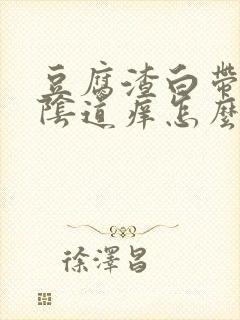 豆腐渣白帶
陰道痒怎麼
徐澤昌